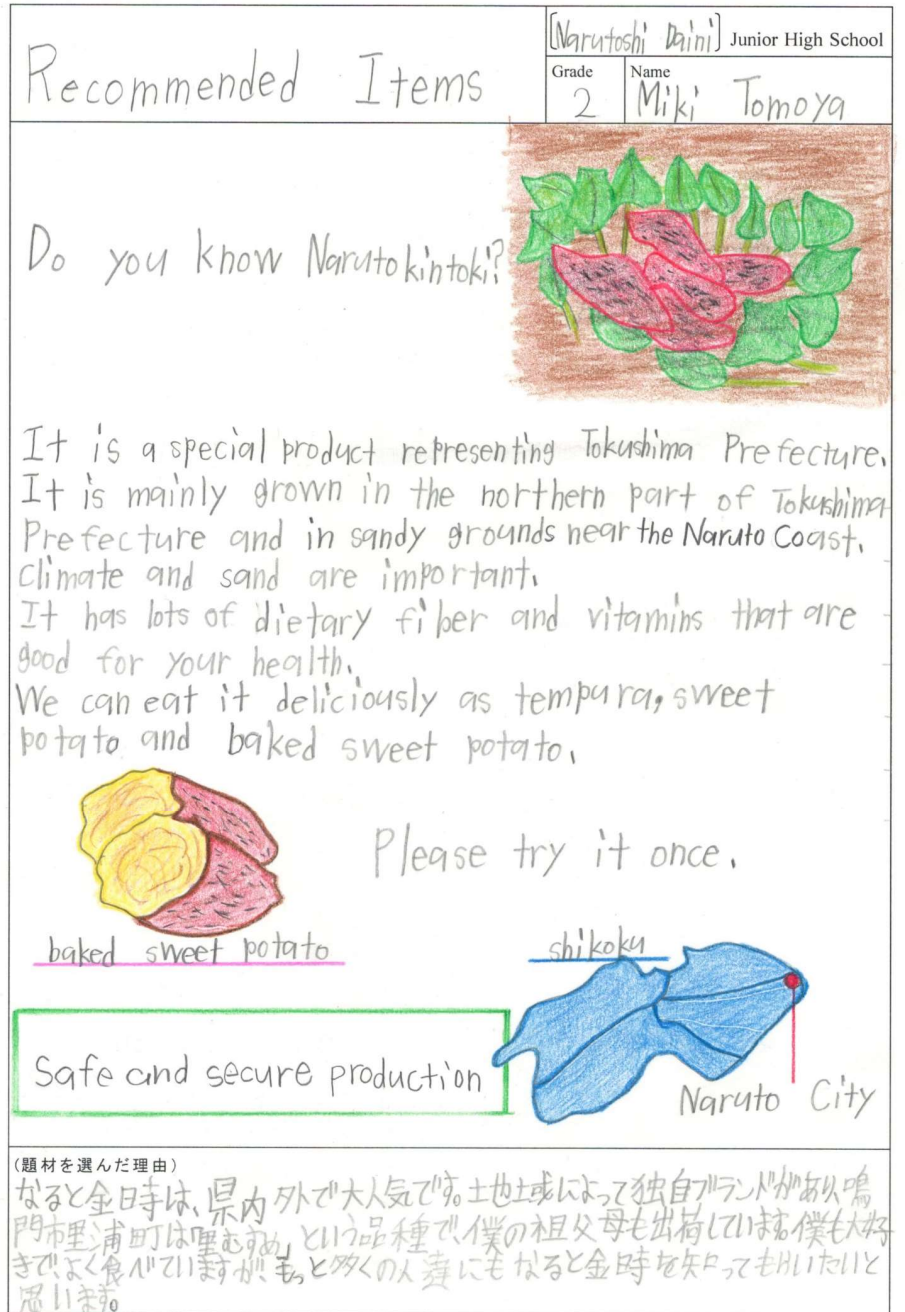 Recommended Items
[Narutoshi Daini] Junior High School
Grade
2
Name
Miki Tomoya
Do you know Narutokintoki?
It is a special product representing Tokushima Prefecture.
It is mainly grown in the northern part of Tokushima
Prefecture and in sandy grounds near the Naruto Coast.
Climate and sand are important.
It has lots of dietary fiber and vitamins that are
good for your health.
We can eat it deliciously as tempura, sweet
potato and baked sweet potato.
Please try it once.
baked sweet potato
shikoku
Safe and secure production
Naruto City
(題材を選んだ理由)
なると金時は、県内外で大人気です。土地土域によって独自ブランドがあり、鳴
門市里浦町は「里むすめ」という品種で、僕の祖父母も出荷しています。僕も大好
きで、よく食べていますが、もっと多くの人達にもなると金時を知ってもらいたいと
思います。